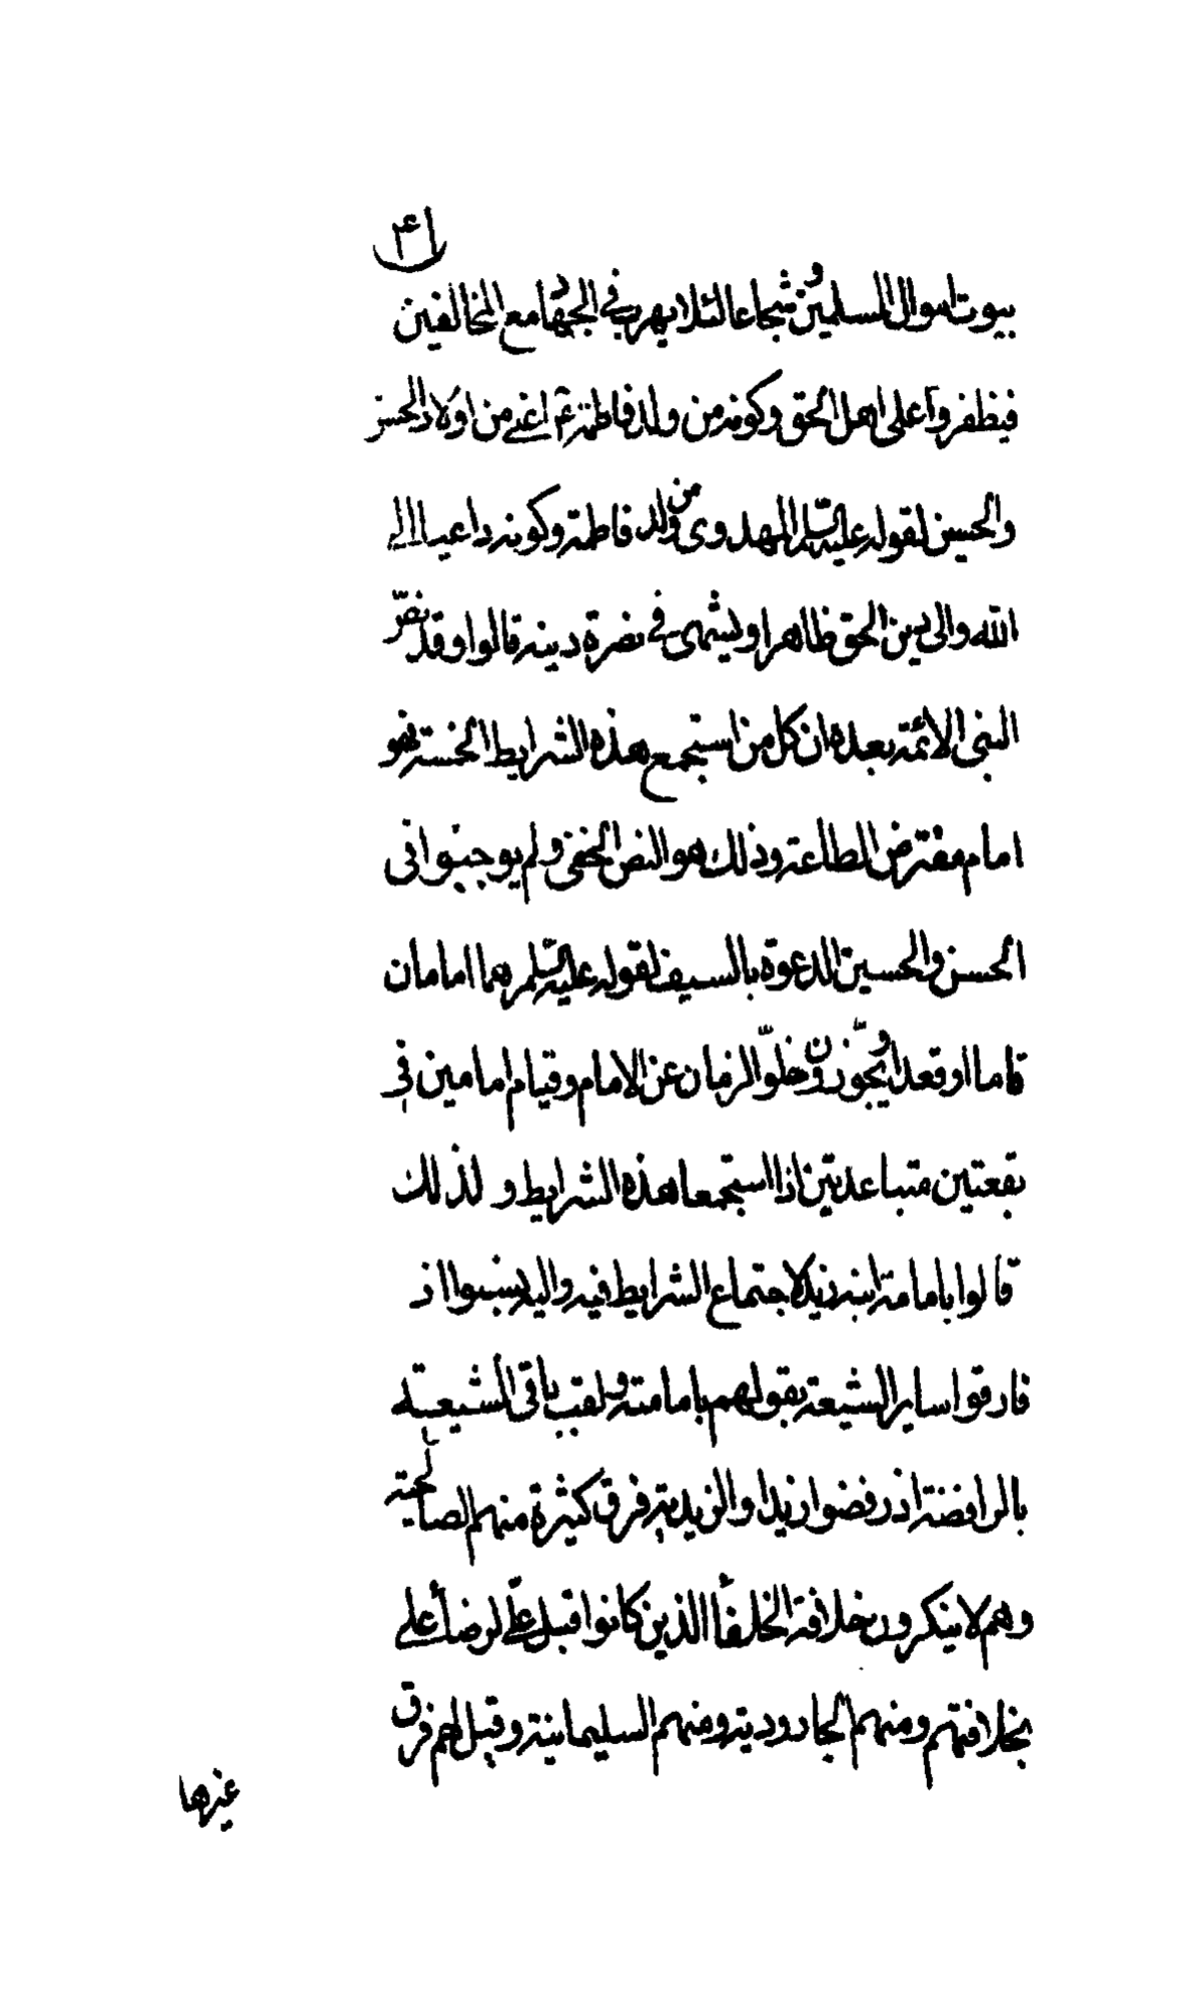 ١٤
بيوت اموال المسلمين وشجاعا لئلا يهرب في الجهاد مع المخالفين
فيظفروا على اهل الحق وكونه من ولد فاطمة ع م اعني من اولاد الحسن
والحسين لقوله عليه السلم المهدوى من ولد فاطمة وكونه داعيا الى
الله والى دين الحق ظاهرا وليشهر في نصرة دينه قالوا وقد نصّ
النبى الائمة بعده ان كل من استجمع هذه الشرايط الخمسة فهو
امام مفترض الطاعة وذلك هو النص الخفى ولم يوجبوا فى
الحسن والحسين الدعوة بالسيف لقوله عليه السلم هما امامان
قاما او قعدا ويجوّزون خلوّ الزمان عن الامام وقيام امامين في
بقعتين متباعدتين اذا استجمعا هذه الشرايط ولذلك
قالوا بامامة ابنه زيد لاجتماع الشرايط فيه واليه ينسبوا اذ
فارقوا ساير الشيعة بقولهم بامامته ولقب باقى الشيعة
بالرافضة اذ رفضوا زيدا والزيدية فرق كثيرة منهم الصالحية
وهم لا ينكرون خلافة الخلفأ الذين كانوا قبل علىّ لرضأ على
بخلافتهم ومنهم الجارودية ومنهم السليمانية وقيل لهم فرق
غيرها